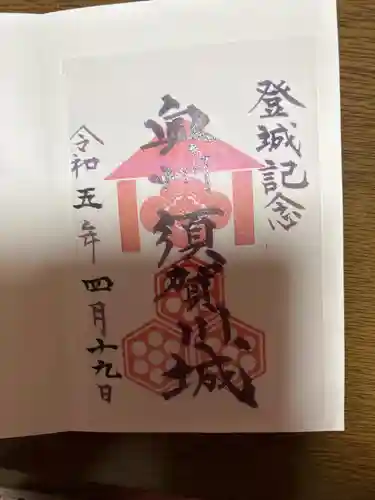 登城記念
奥州須賀川城
令和五年四月十九日